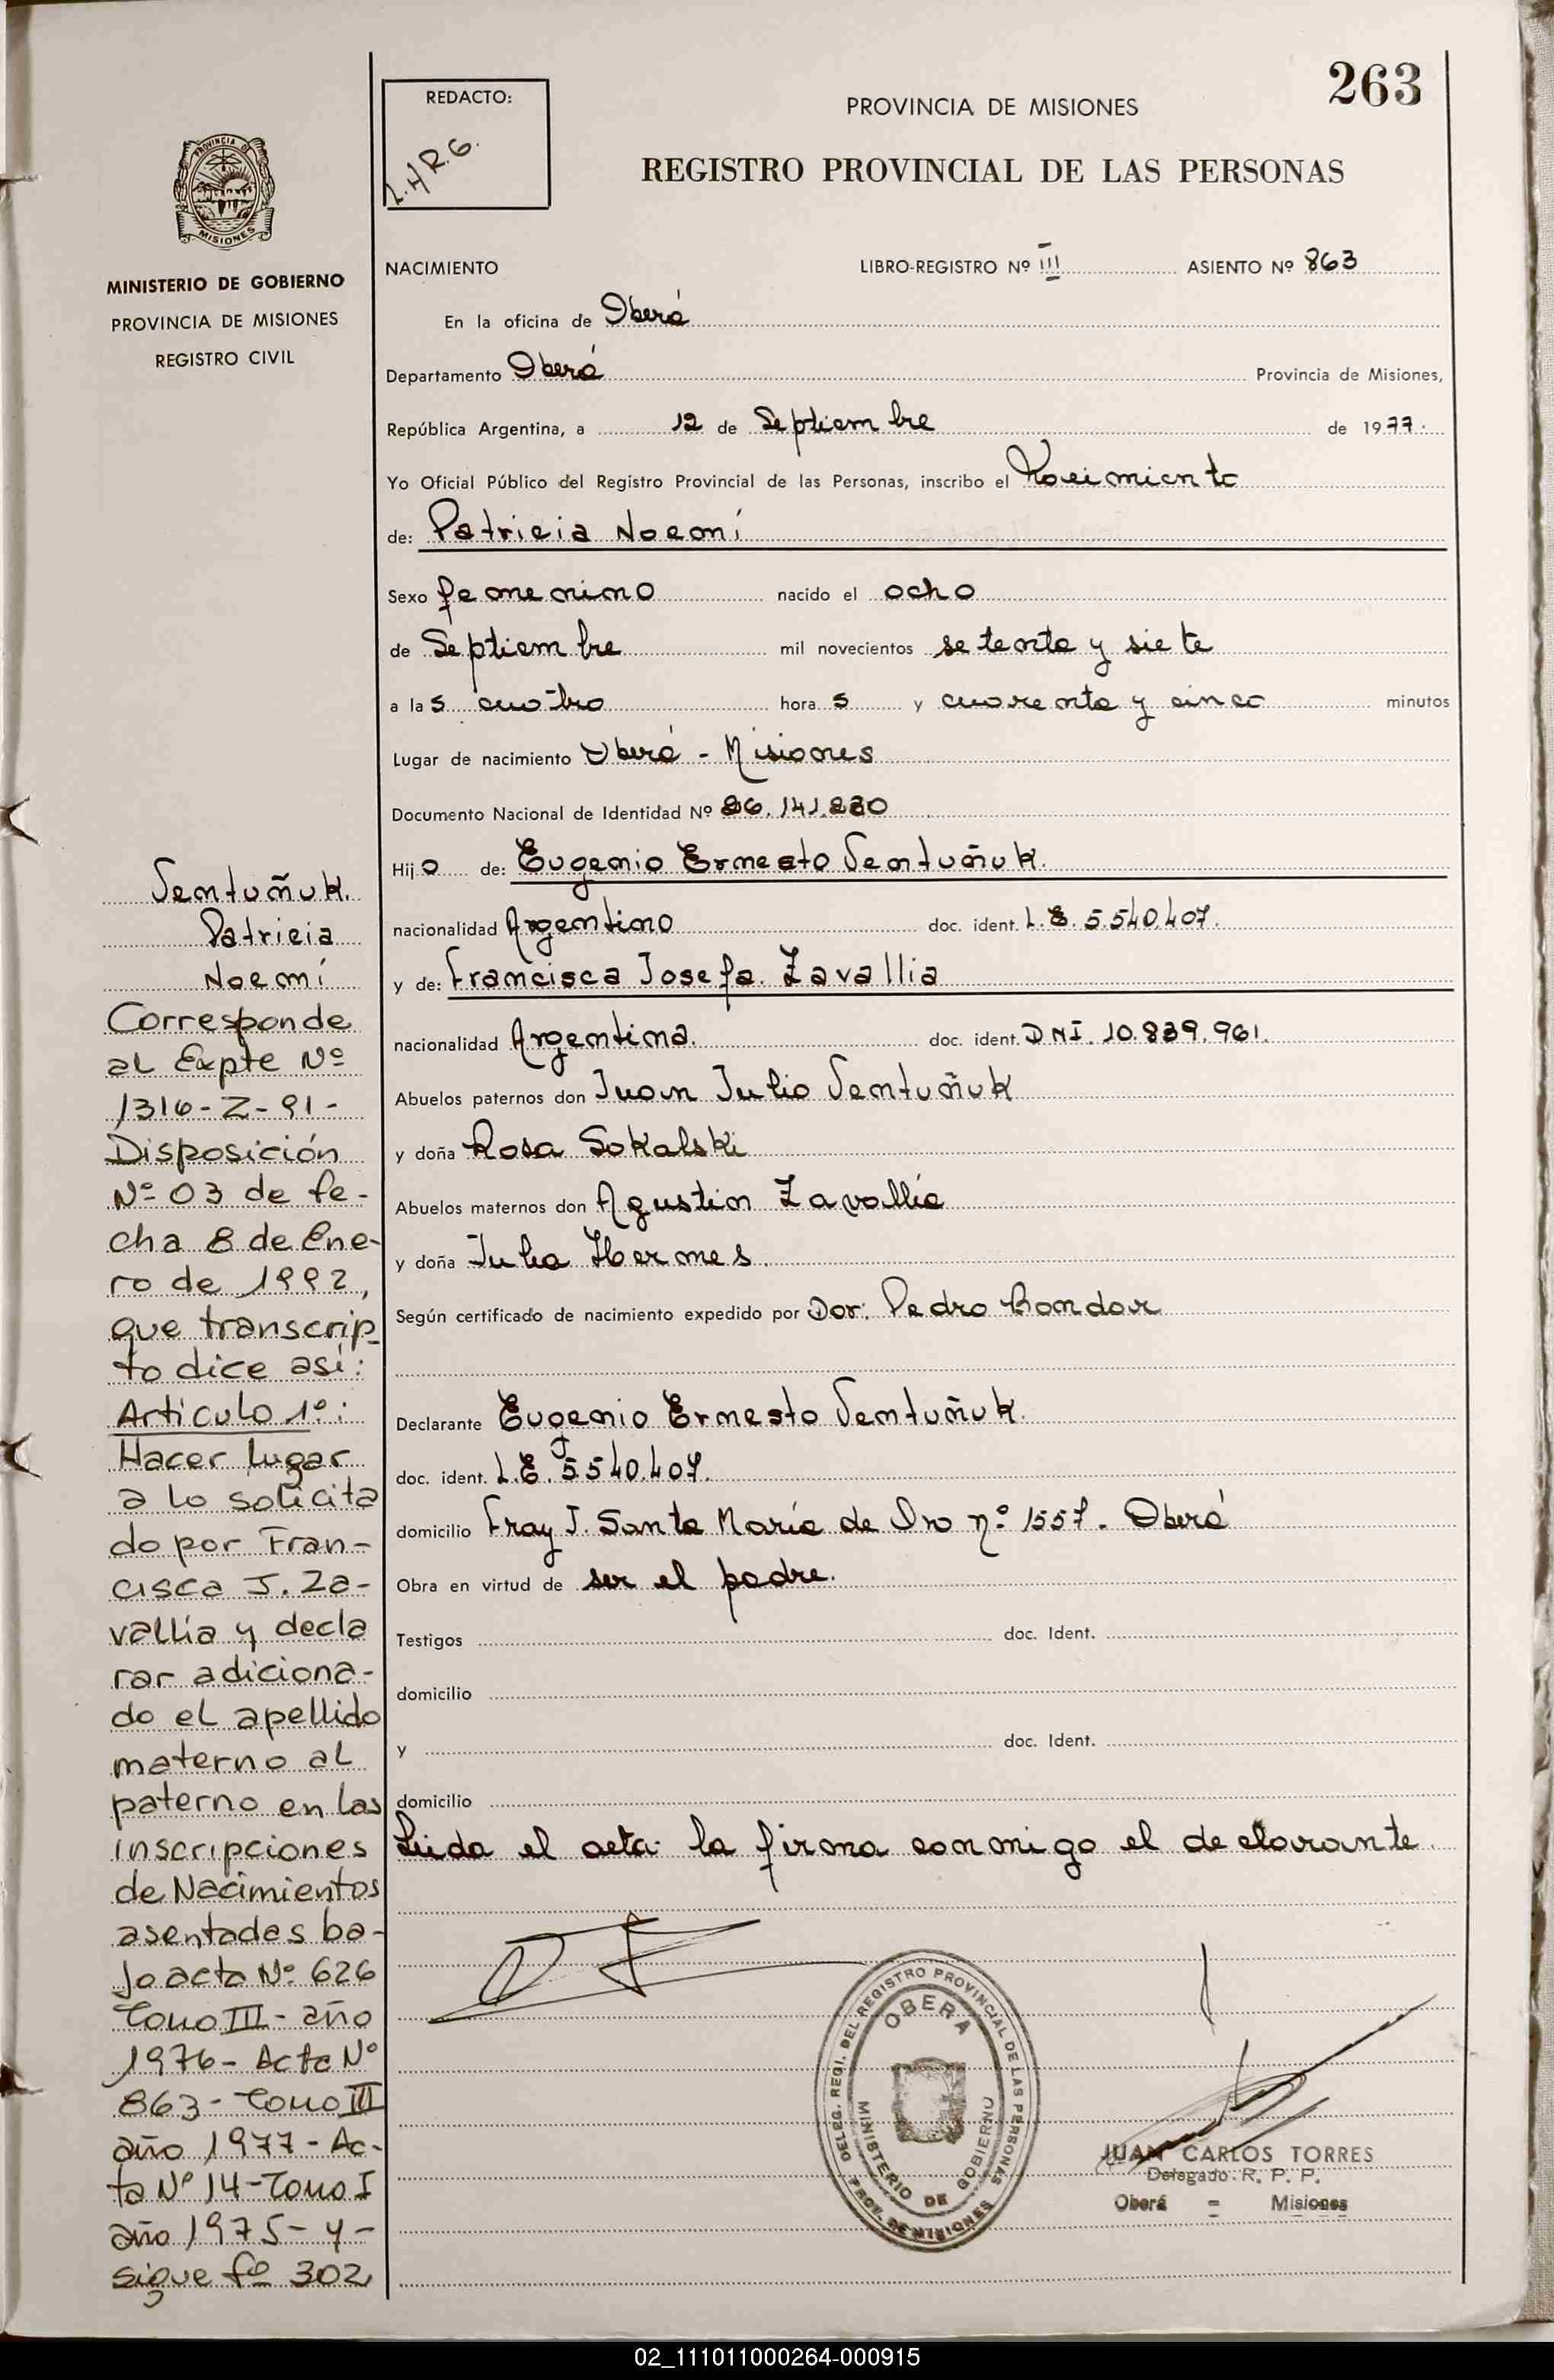 263
REDACTO:
L.H.R.G.
PROVINCIA DE MISIONES
REGISTRO PROVINCIAL DE LAS PERSONAS
PROVINCIA DE
MISIONES
MINISTERIO DE GOBIERNO
PROVINCIA DE MISIONES
REGISTRO CIVIL
NACIMIENTO LIBRO-REGISTRO Nº III ASIENTO Nº 863
En la oficina de Oberá
Departamento Oberá Provincia de Misiones,
República Argentina, a 12 de Septiembre de 1977.
Yo Oficial Público del Registro Provincial de las Personas, inscribo el Nacimiento
de: Patricia Noemí
Sexo femenino nacido el ocho
de Septiembre mil novecientos setenta y siete
a las cuatro horas y cuarenta y cinco minutos
Lugar de nacimiento Oberá - Misiones
Documento Nacional de Identidad Nº 26.141.230
Hijo de: Eugenio Ernesto Sentuñuk.
nacionalidad Argentino doc. ident. L.E. 5.540.407.
y de: Francisca Josefa Zavallia
nacionalidad Argentina. doc. ident. DNI. 10.839.961.
Abuelos paternos don Juan Julio Sentuñuk
y doña Rosa Sokalski
Abuelos maternos don Agustin Zavallía
y doña Julia Hermes.
Según certificado de nacimiento expedido por Dor: Pedro Bondar
Declarante Eugenio Ernesto Sentuñuk.
doc. ident. L.E. 5.540.407.
domicilio Fray J. Santa María de Oro nº 1557. Oberá
Obra en virtud de ser el padre.
Testigos doc. Ident.
domicilio
y doc. Ident.
domicilio
Leida el acta la firma conmigo el declarante.
Sentuñuk.
Patricia
Noemí
Corresponde
al Expte Nº
1316-Z-91-
Disposición
Nº 03 de fe-
cha 8 de Ene-
ro de 1992,
que transcrip-
to dice así:
Artículo 1º:
Hacer lugar
a lo solicita
do por Fran-
cisca J. Za-
vallía y decla
rar adiciona-
do el apellido
materno al
paterno en las
inscripciones
de Nacimientos
asentadas ba-
jo acta Nº 626
Tomo III - año
1976 - Acta Nº
863 - Tomo III
año 1977 - Ac-
ta Nº 14 - Tomo I
año 1975 - y -
sigue fº 302
DELEG. REGI. DEL REGISTRO PROVINCIAL DE LAS PERSONAS
OBERA
MINISTERIO DE GOBIERNO
PROV. DE MISIONES
JUAN CARLOS TORRES
Delegado R. P. P.
Oberá = Misiones
02_111011000264-000915